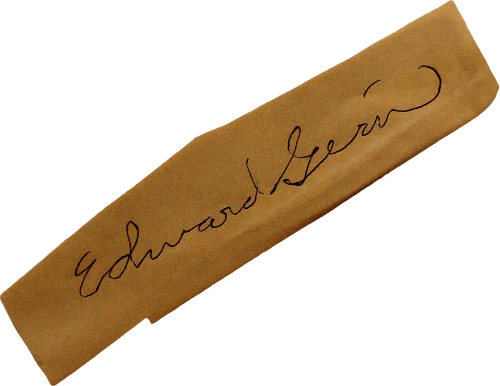 Edward Gein